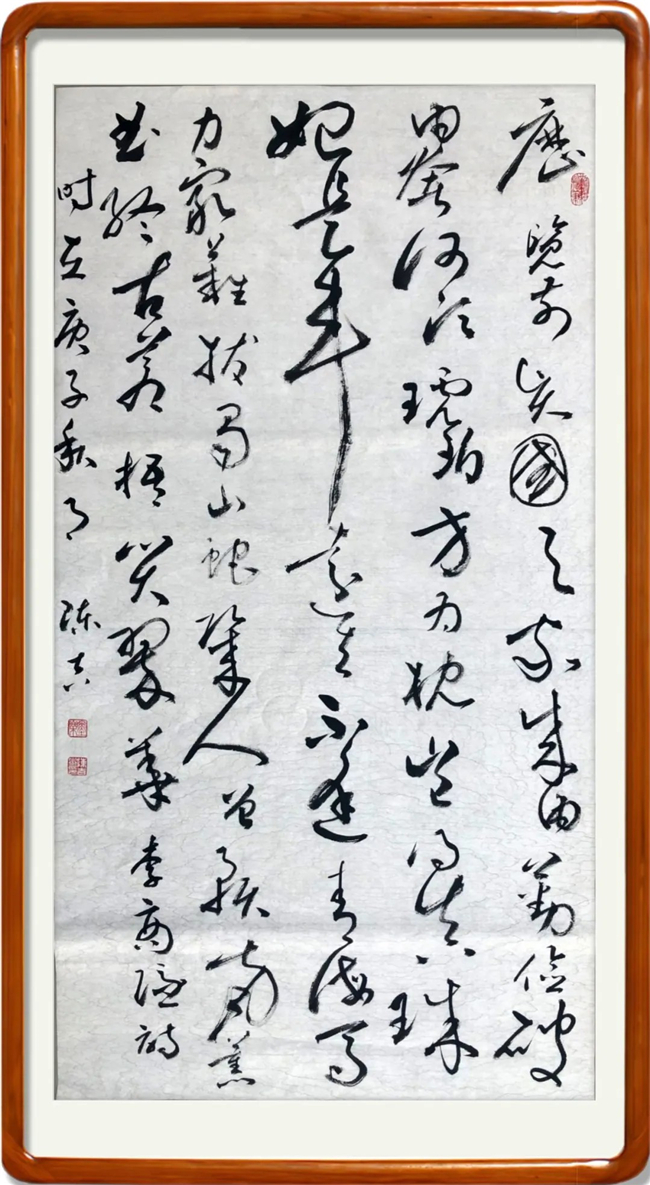 歷覽前賢國与家成由勤儉破
由奢何須琥珀方为枕豈得真珠
始是車運去不逢青海馬
力窮難拔蜀山蛇幾人曾預南薰
曲終古蒼梧哭翠華 李商隱詩
时在庚子秋月 陈